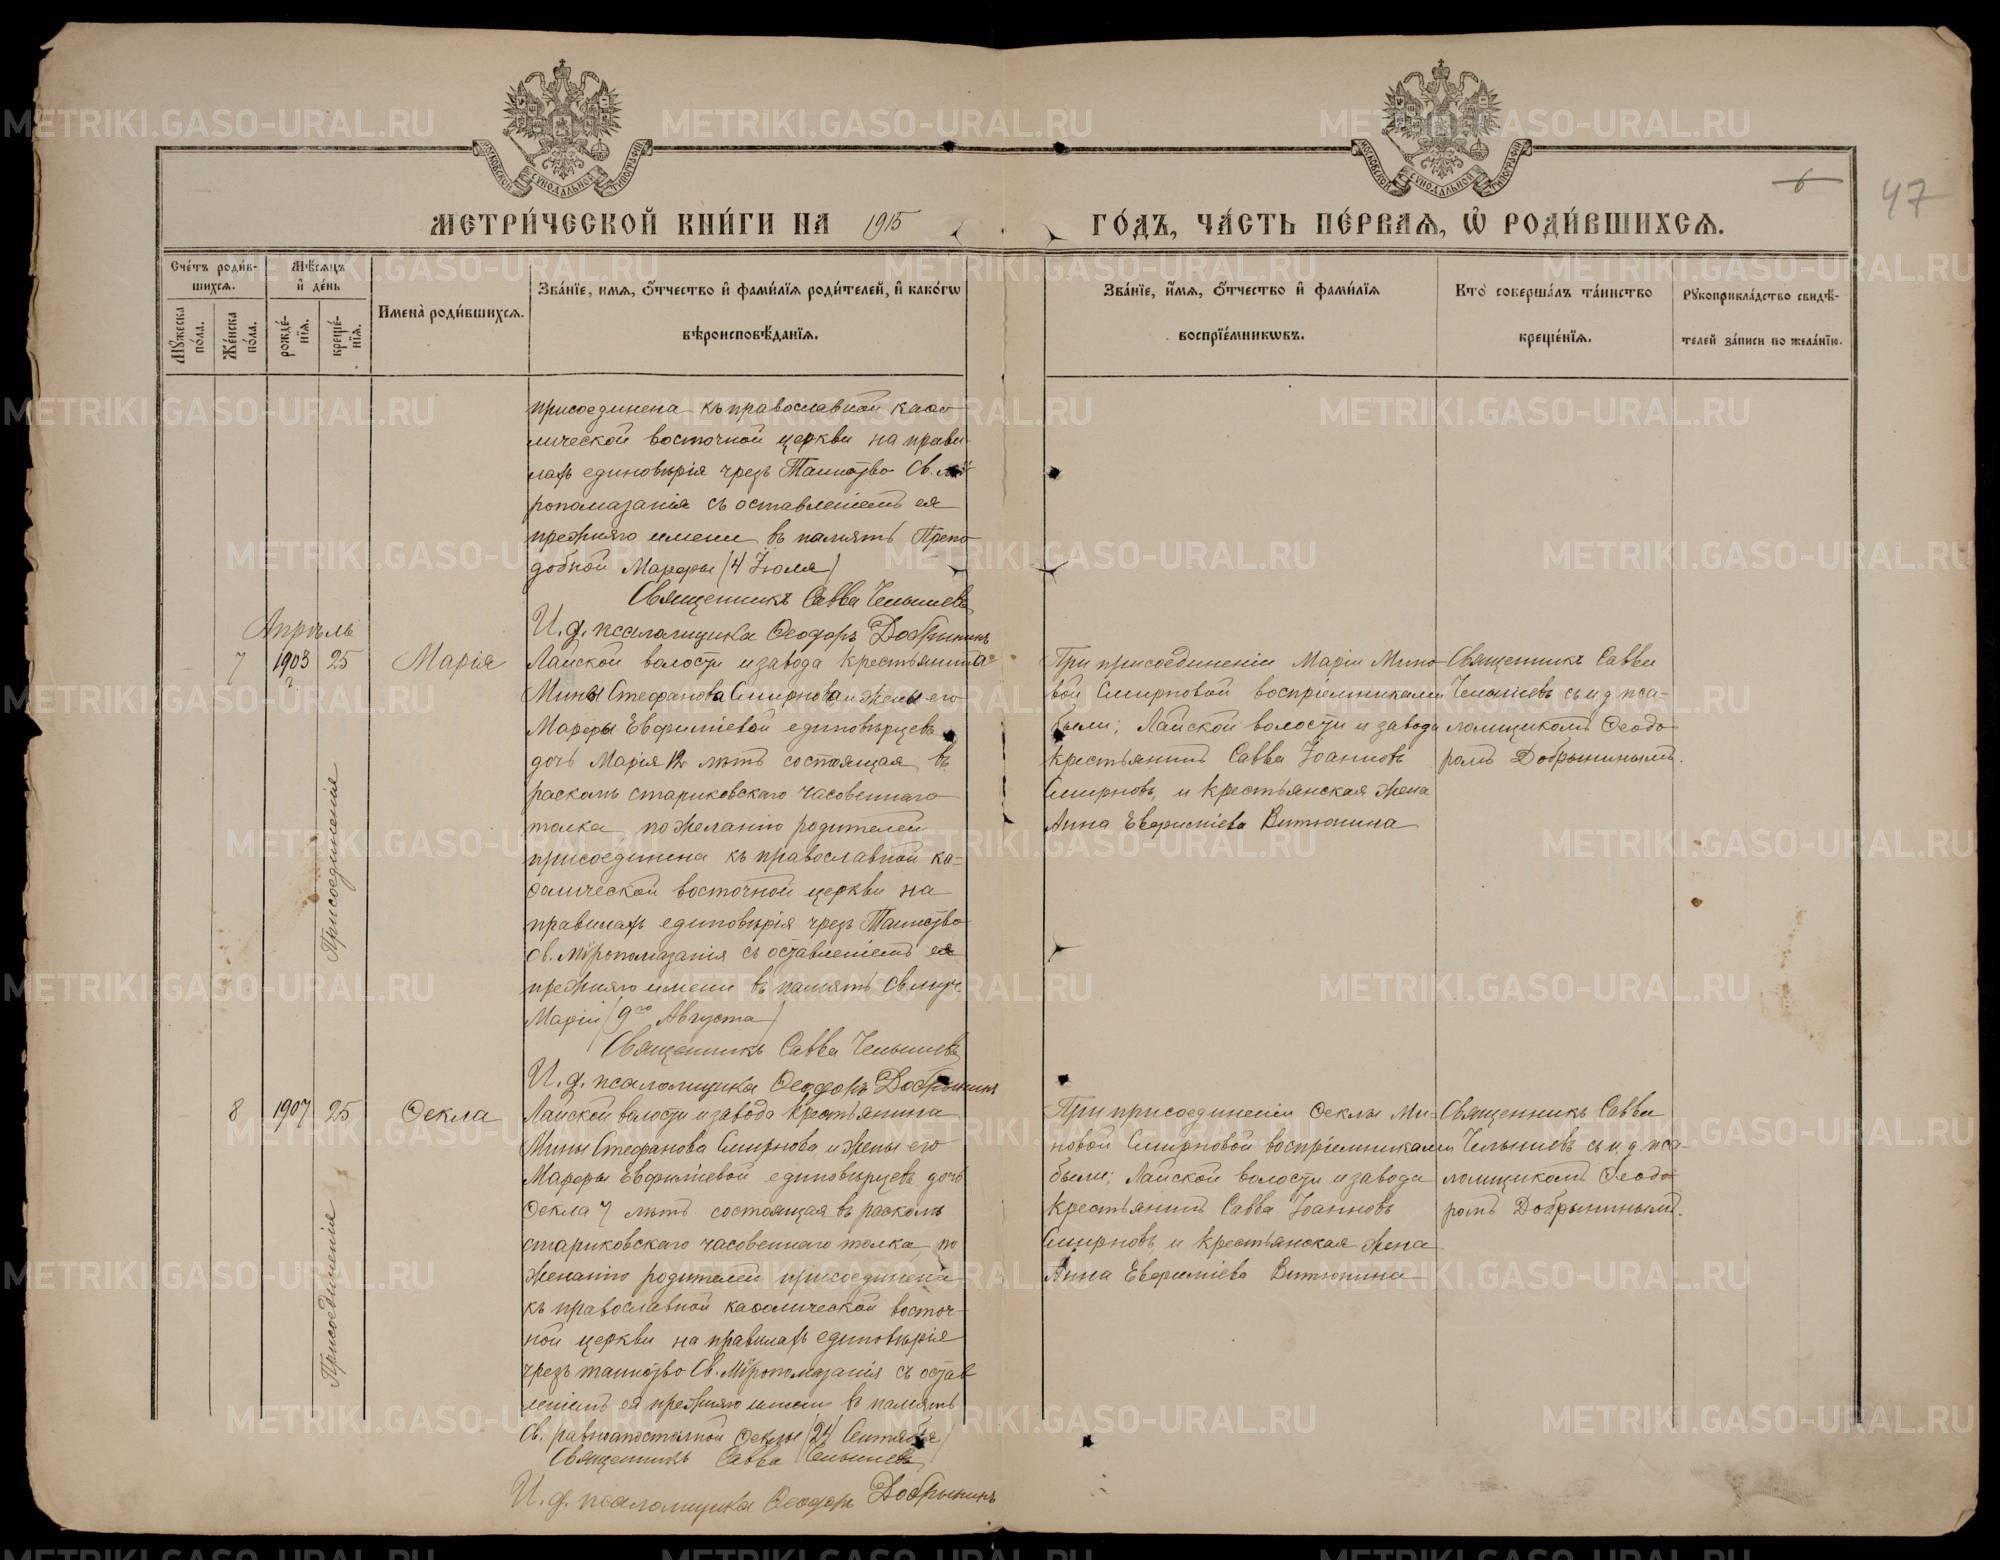 МЕТРИ́ЧЕСКОЙ КНИ́ГИ НА 1915
ГО́ДЪ, ЧА́СТЬ ПЕ́РВАЯ, Ѡ҆ РОДИ́ВШИХСЯ.
6
47
Сче́тъ роди́в-
шихся.
Мѣ́сяцъ
и҆ де́нь
Му́жеска по́ла.
Же́нска по́ла.
рожде́-нїя.
креще́-нїя.
Имена̀ роди́вшихся.
Зва́нїе, имя, ѻ҆́тчество и҆ фами́лїя роди́телей, и҆ како́гѡ
вѣроисповѣ́данїя.
Зва́нїе, и҆́мя, ѻ҆́тчество и҆ фами́лїя
воспрїе́мникѡвъ.
Кто̀ соверша́лъ та́инство
креще́нїя.
Рукоприкла́дство свидѣ́-
телей за́писи по жела́нїю.
присоединена къ православной каѳо-
лической восточной церкви на прави-
лахъ единовѣрія чрезъ Таинство Св. Мѵ-
ропомазанія съ оставленіемъ ея
прежняго имени въ память Препо-
добной Марѳы (4 Іюля)
Священникъ Савва Челышевъ
И. д. псаломщика Ѳеодоръ Добрынинъ
Апрѣль
7 1903 г. 25 Марія
Присоединенія
Лайской волости и завода крестьянина
Мины Стефанова Смирнова и жены его
Марѳы Евфиміевой единовѣрцевъ
дочь Марія 12 лѣтъ состоящая въ
расколѣ стариковскаго часовеннаго
толка по желанію родителей
присоединена къ православной ка-
ѳолической восточной церкви на
правилахъ единовѣрія чрезъ Таинство
Св. Мѵропомазанія съ оставленіемъ ея
прежняго имени въ память Св. муч.
Маріи (9го Августа)
Священникъ Савва Челышевъ
И. д. псаломщика Ѳеодоръ Добрынинъ
При присоединеніи Маріи Мино-
вой Смирновой воспріемниками
были; Лайской волости и завода
крестьянинъ Савва Іоанновъ
Смирновъ, и крестьянская жена
Анна Евфиміева Витюнина
Священникъ Савва
Челышевъ съ и. д. пса-
ломщикомъ Ѳеодо-
ромъ Добрынинымъ.
8 1907 25 Ѳекла
Присоединенія
Лайской волости и завода крестьянина
Мины Стефанова Смирнова и жены его
Марѳы Евфиміевой единовѣрцевъ дочь
Ѳекла 7 лѣтъ состоящая въ расколѣ
стариковскаго часовеннаго толка, по
желанію родителей присоединена
къ православной каѳолической восточ-
ной церкви на правилахъ единовѣрія
чрезъ таинство Св. Мѵропомазанія съ остав-
леніемъ ея прежняго имени въ память
Св. равноапостольной Ѳеклы (24 Сентября)
Священникъ Савва Челышевъ
И. д. псаломщика Ѳеодоръ Добрынинъ
При присоединеніи Ѳеклы Ми-
новой Смирновой воспріемниками
были; Лайской волости и завода
крестьянинъ Савва Іоанновъ
Смирновъ, и крестьянская жена
Анна Евфиміева Витюнина
Священникъ Савва
Челышевъ съ и. д. пса-
ломщикомъ Ѳеодо-
ромъ Добрынинымъ.
METRIKI.GASO-URAL.RU